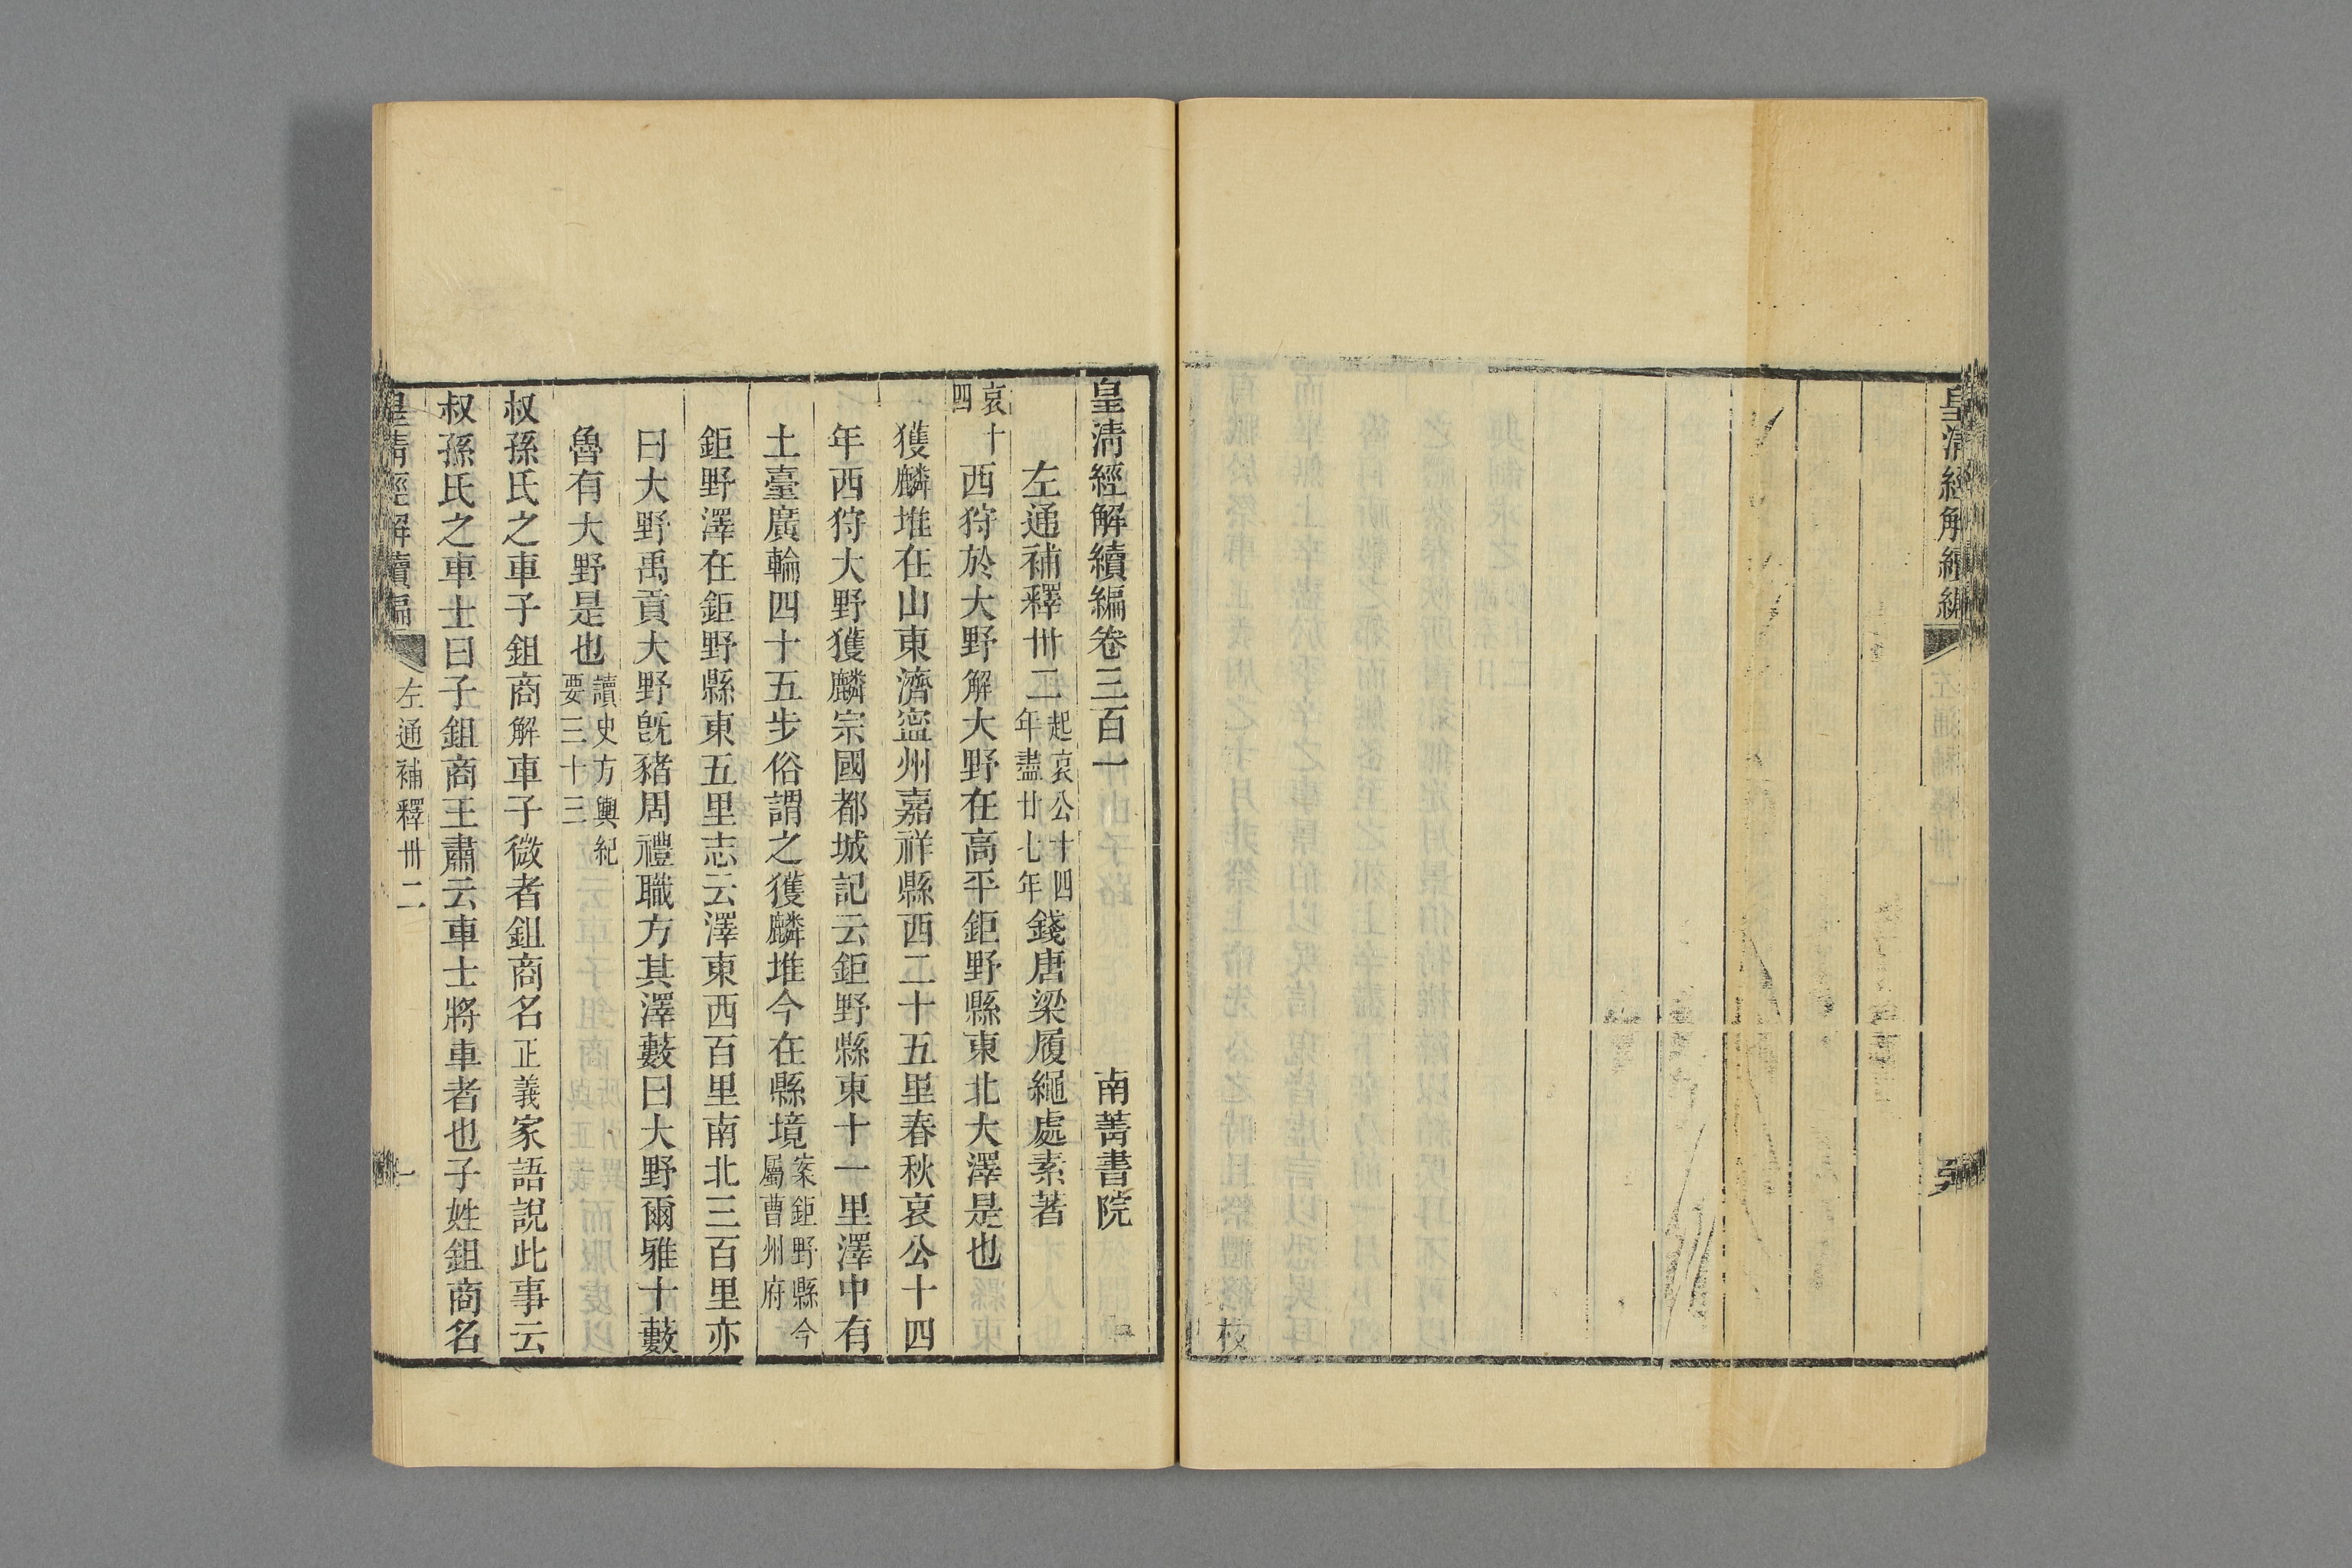 皇清經解續編
左通補釋卅一
校
皇清經解續編卷三百一 南菁書院
左通補釋卅二起哀公十四年盡廿七年錢唐梁履繩處素著
哀十四西狩於大野解大野在高平鉅野縣東北大澤是也
獲麟堆在山東濟寍州嘉祥縣西二十五里春秋哀公十四
年西狩大野獲麟宗國都城記云鉅野縣東十一里澤中有
土臺廣輪四十五步俗謂之獲麟堆今在縣境案鉅野縣今屬曹州府
鉅野澤在鉅野縣東五里志云澤東西百里南北三百里亦
曰大野禹貢大野旣豬周禮職方其澤藪曰大野爾雅十藪
魯有大野是也讀史方輿紀要三十三
叔孫氏之車子鉏商解車子微者鉏商名正義家語說此事云
叔孫氏之車士曰子鉏商王肅云車士將車者也子姓鉏商名
皇清經解續編 左通補釋卅二 一